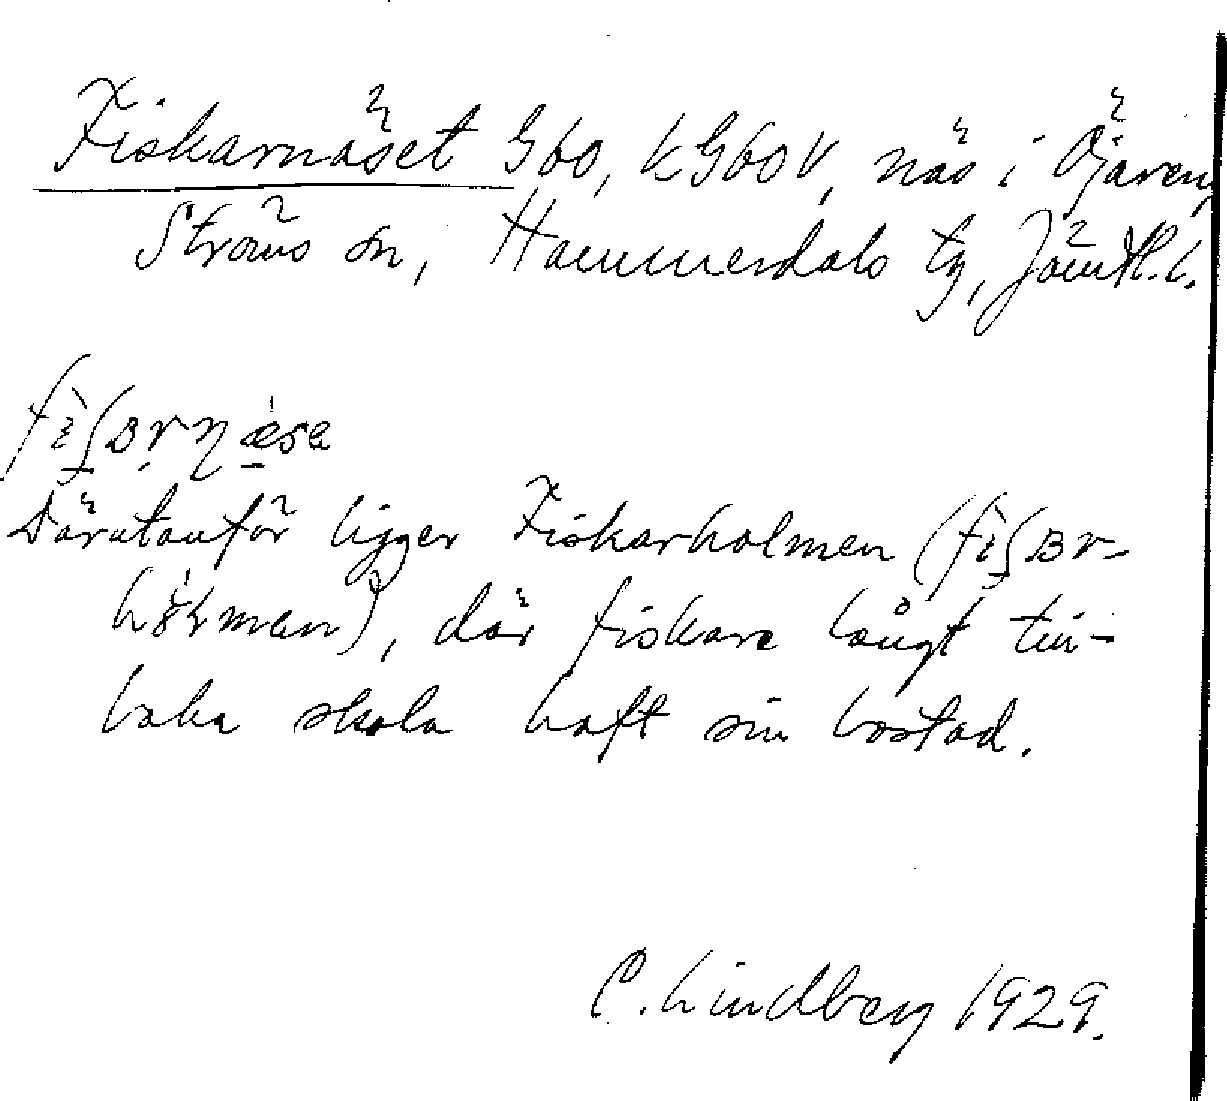 Fiskarnäset G60, kG60V, näs i Öjaren,
Ströms sn, Hammerdals tg, Jämtl. l.
Därutanför ligger Fiskarholmen
där fiskare långt till-
baka skola haft sin bostad.
C. Lindberg 1929.